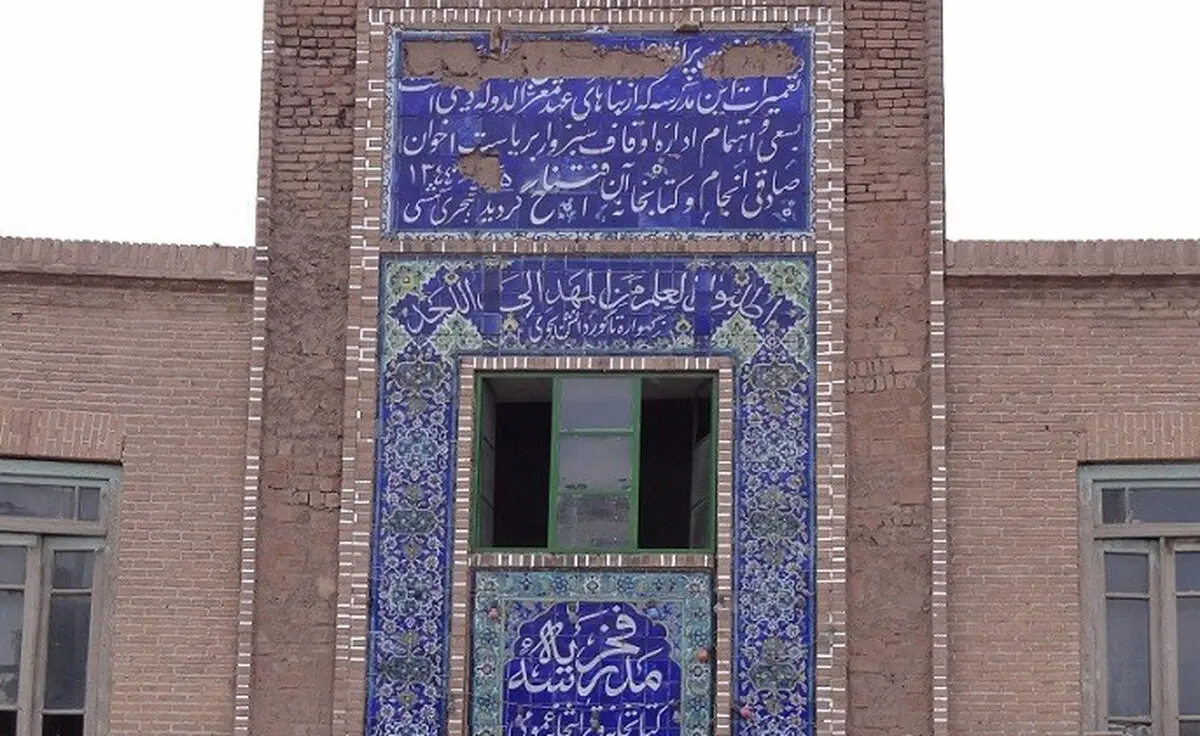 تعمیرات این مدرسه که از بناهای عهد معزالدوله دیلمی است
بسعی و اهتمام اداره اوقاف سبزوار بریاست اخوان
صادقی انجام و کتابخانه آن افتتاح گردید ۱۳۴۴ هجری شمسی
اطلبوا العلم من المهد الی اللحد
ز گهواره تا گور دانش بجوی
مدرسه فخریه
کتابخانه و قرائتخانه عمومی